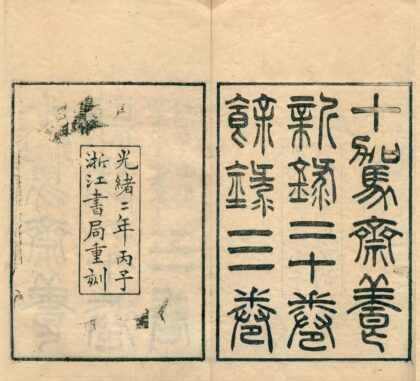 十駕齋養
新錄二十卷
餘錄三卷
光緒二年丙子
浙江書局重刻